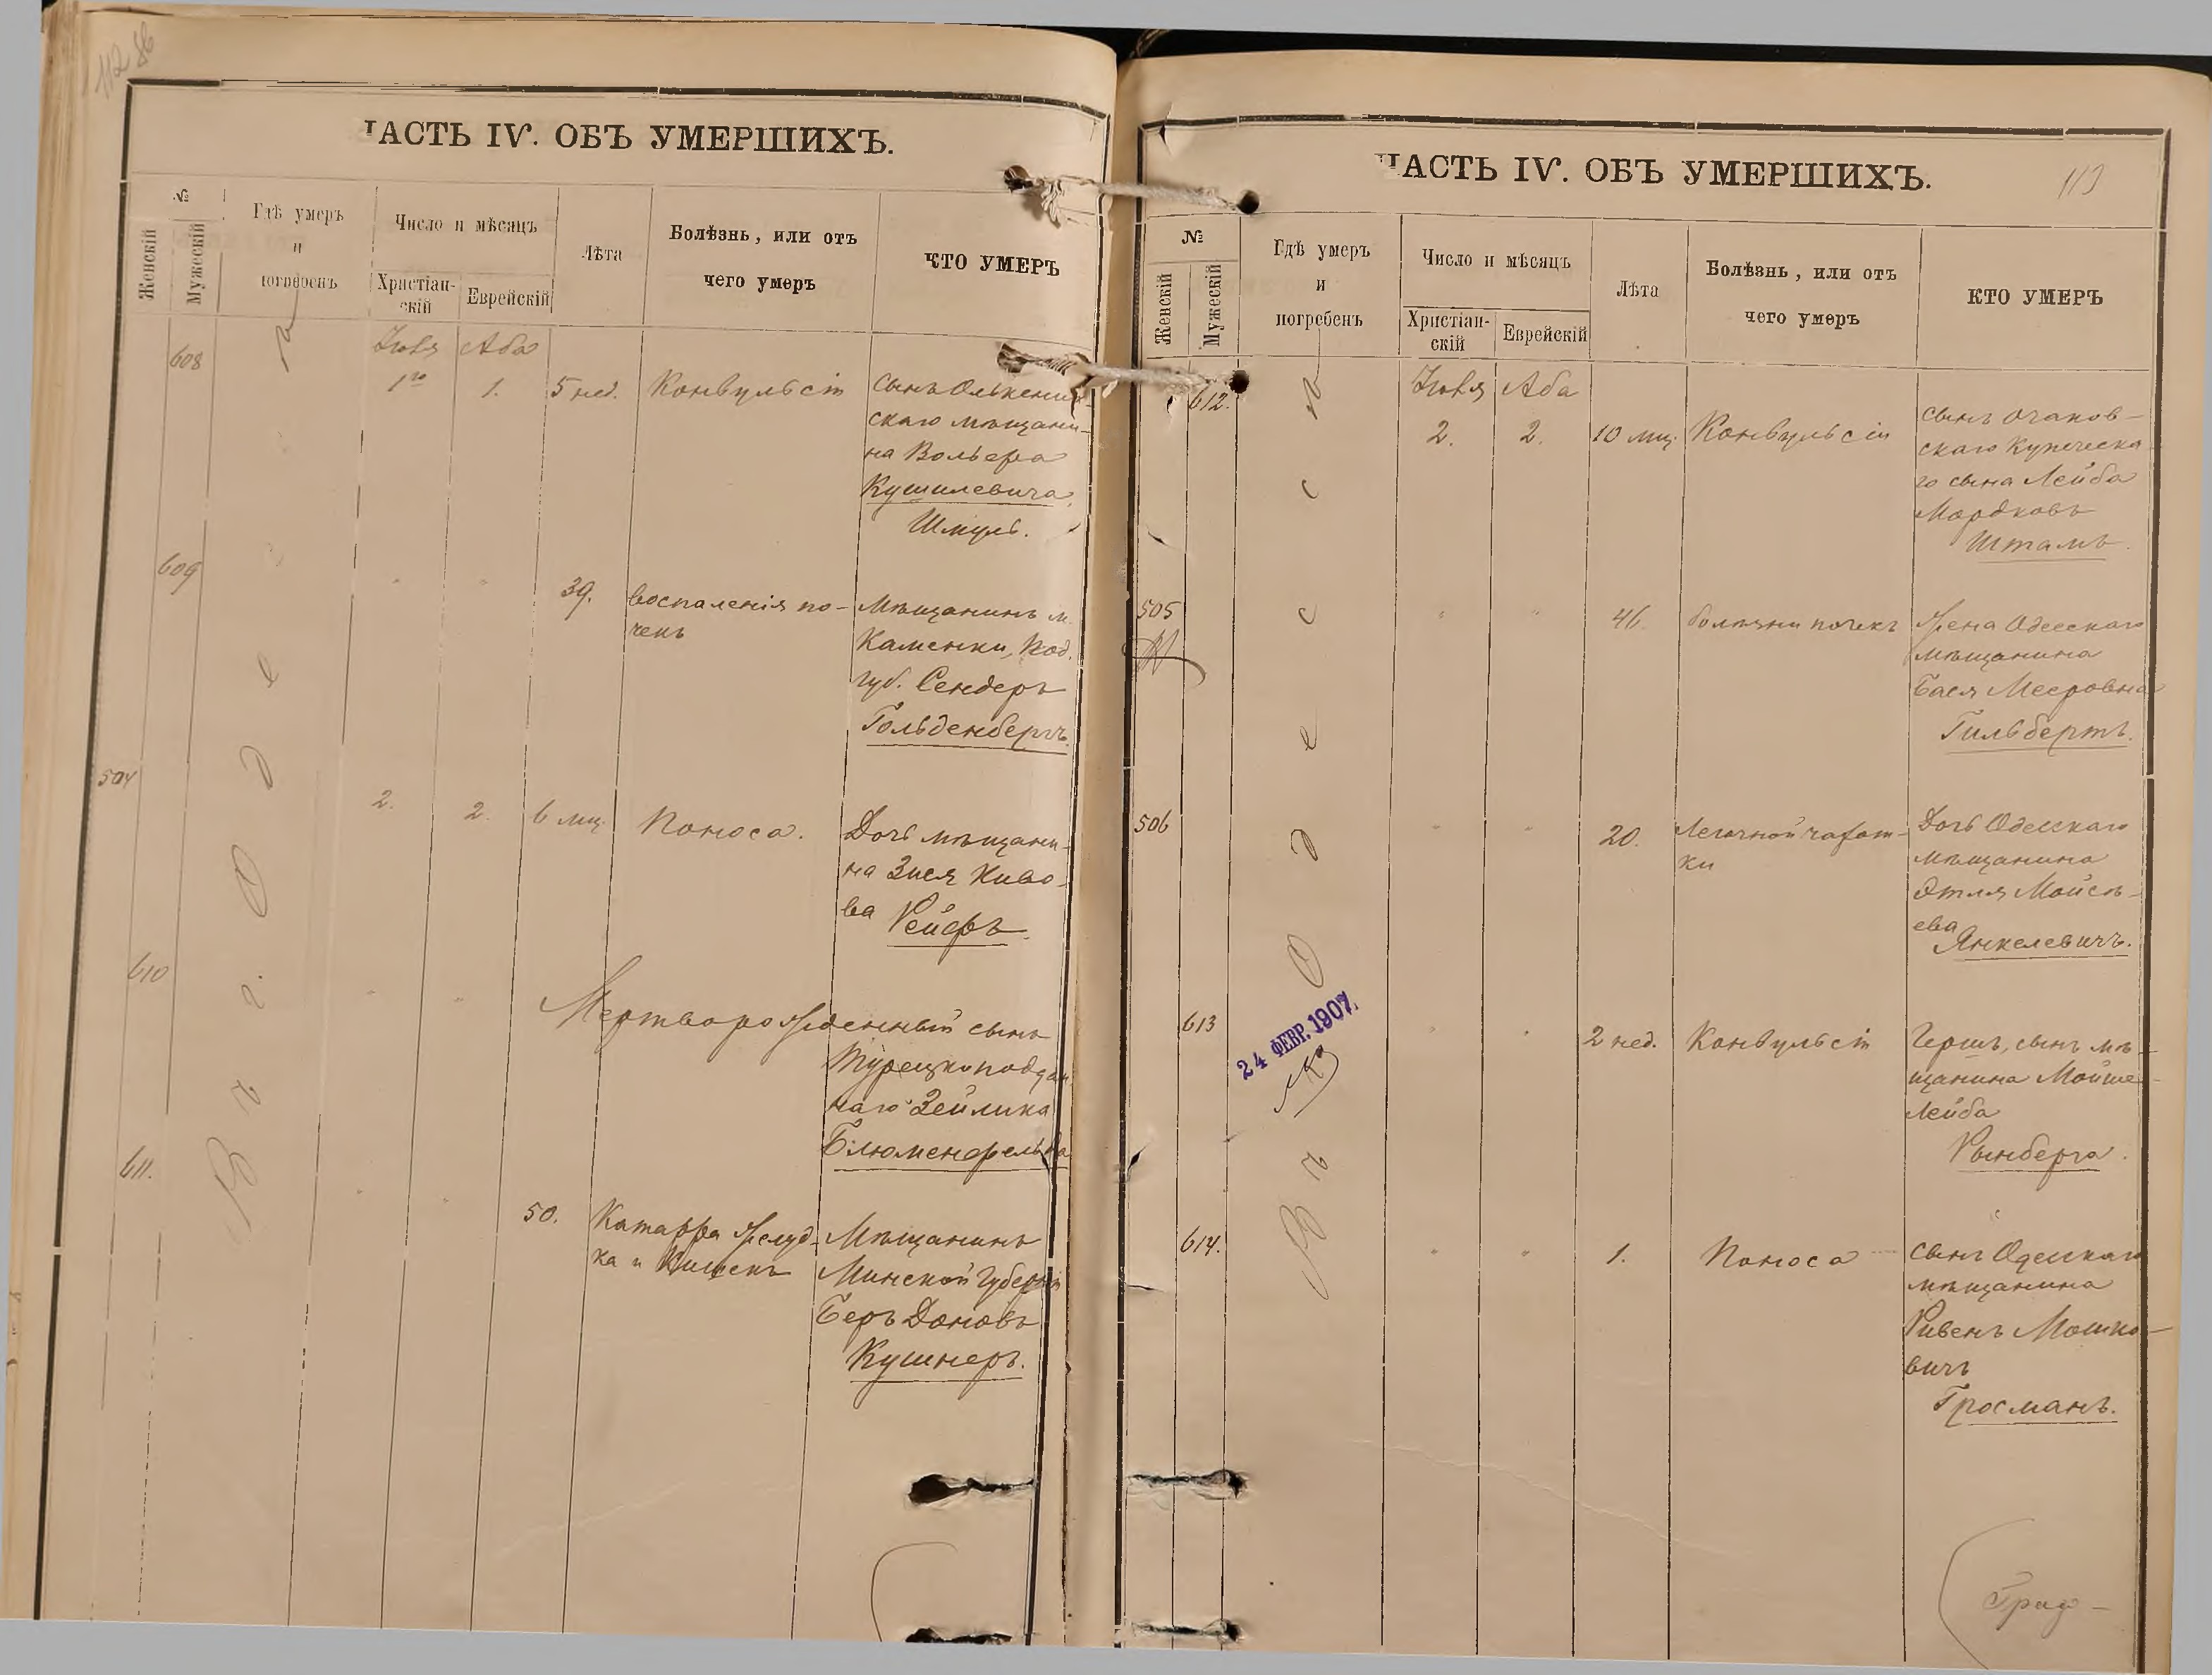 112
ЧАСТЬ IV. ОБЪ УМЕРШИХЪ.
№
Женскій
Мужескій
Гдѣ умеръ
и
погребенъ
Число и мѣсяцъ
Христіан-
скій
Еврейскій
Лѣта
Болѣзнь, или отъ
чего умеръ
КТО УМЕРЪ
Въ г. Одессѣ
608
Іюля
Аба
1го
1.
5 нед.
Конвульсій
Сынъ Олькениц-
скаго мѣщани-
на Вольфа
Кушилевича
Шмуль.
609
"
"
39.
воспаленія по-
чекъ
Мѣщанинъ м.
Каменки, Под.
губ. Сендеръ
Гольденбергъ
504
2.
2.
6 мц.
Поноса.
Дочь мѣщани-
на Зися Киво-
ва Рейфъ
610
"
"
Мертворожденный сынъ
Турецкоподдан
наго Зейлика
Блюменфельда
611.
"
"
50.
Катарра желуд-
ка и Кишекъ
Мѣщанинъ
Минской Губерніи
Беръ Доновъ
Кушнеръ.
ЧАСТЬ IV. ОБЪ УМЕРШИХЪ.
113
№
Женскій
Мужескій
Гдѣ умеръ
и
погребенъ
Число и мѣсяцъ
Христіан-
скій
Еврейскій
Лѣта
Болѣзнь, или отъ
чего умеръ
КТО УМЕРЪ
Въ Одессѣ
612.
Іюля
Аба
2.
2.
10 мц.
Конвульсіи
сынъ Очаков-
скаго Купеческа
го сына Лейба
Мордковъ
Штамъ.
505
"
"
46.
болѣзни почекъ
Жена Одесскаго
мѣщанина
Бася Мееровна
Гильбертъ.
506
"
"
20.
Легочной чахот-
ки
Дочь Одесскаго
мѣщанина
Этля Моисѣ-
ева
Янкелевичъ.
613
24 ФЕВР. 1907.
"
"
2 нед.
Конвульсій
Гершъ, сынъ мѣ-
щанина Мойше-
Лейба
Рынберга.
614.
"
"
1.
Поноса
сынъ Одесскаго
мѣщанина
Ривенъ Мошко-
вичъ
Гросманъ.